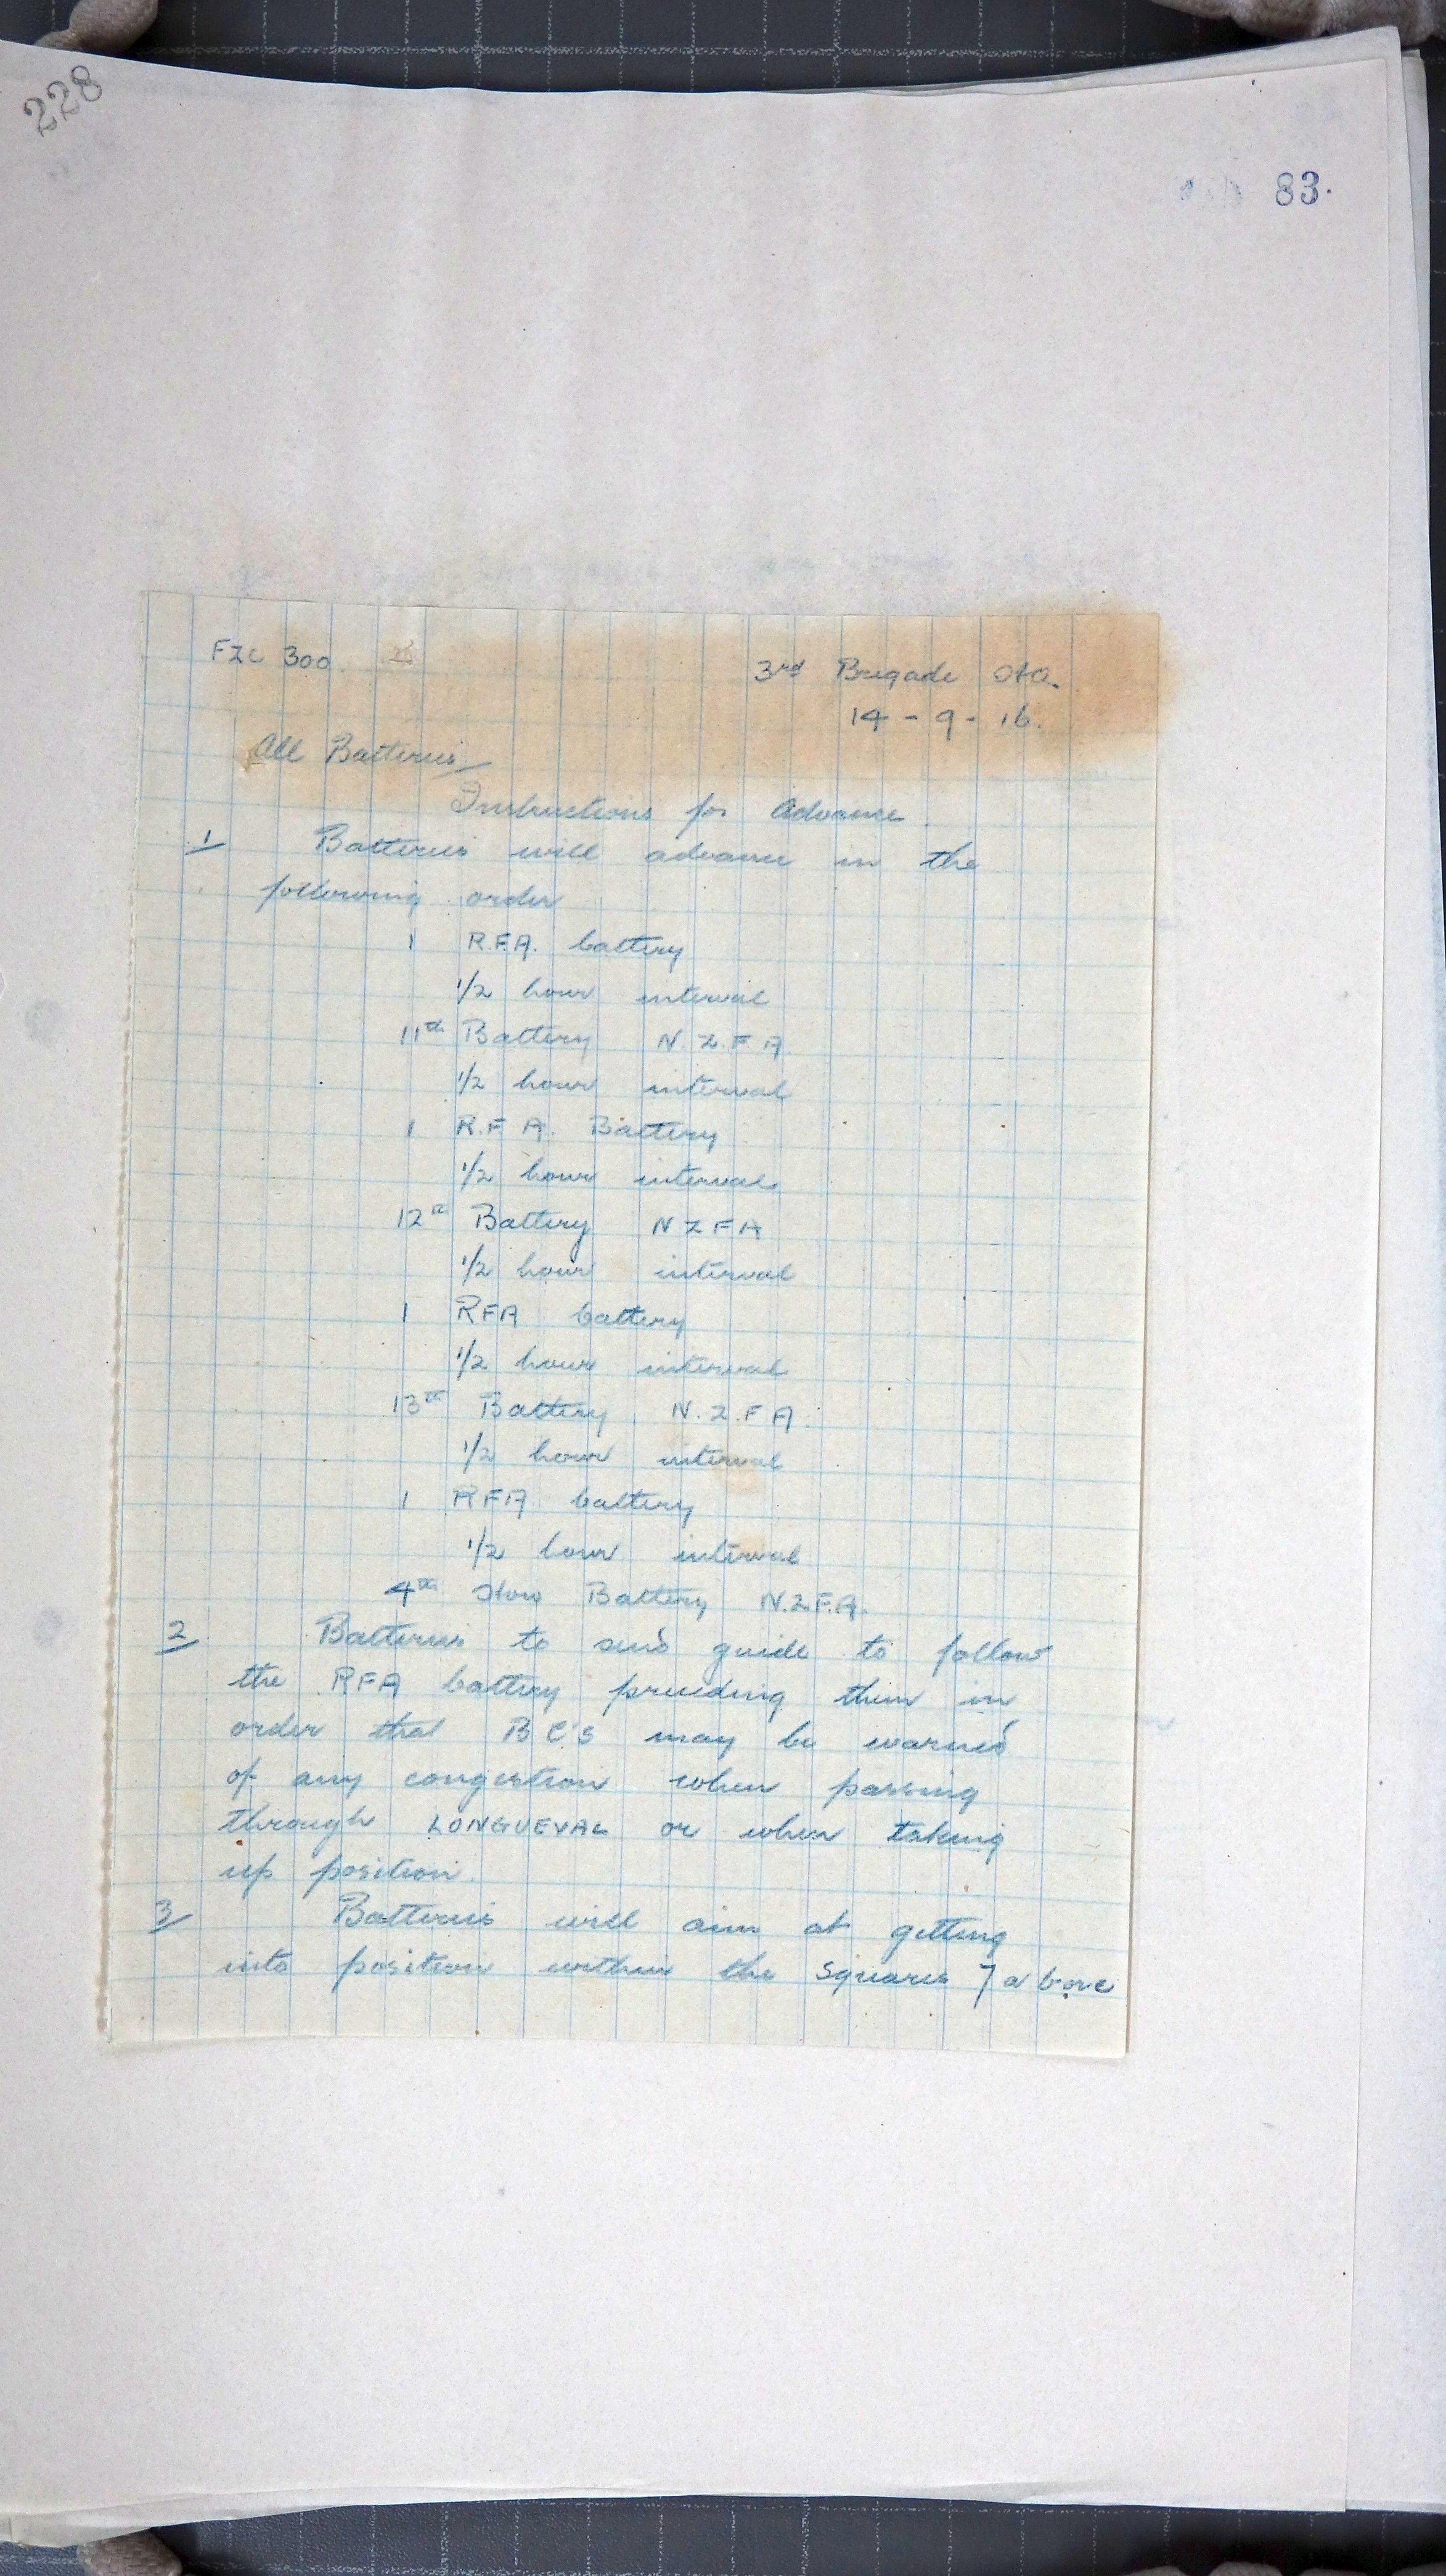 228
83.
FZC 300
3rd Brigade
14 - 9 - 16.
All Batteries
Instructions for Advance.
1 Batteries will advance in the
following order
1 R.F.A. battery
1/2 hour interval
11th Battery N.Z.F.A.
1/2 hour interval
1 R.F.A. Battery
1/2 hour interval
12th Battery NZFA
1/2 hour interval
1 RFA battery
1/2 hour interval
13th Battery N.Z.FA.
1/2 hour interval
1 RFA battery
1/2 hour interval
4th How Battery N.Z.F.A.
2 Batteries to send guide to follow
the RFA battery preceding them in
order that BC's may be warned
of any congestion when passing
through LONGUEVAL or when taking
up position.
3 Batteries will aim at getting
into position within the squares 7 above